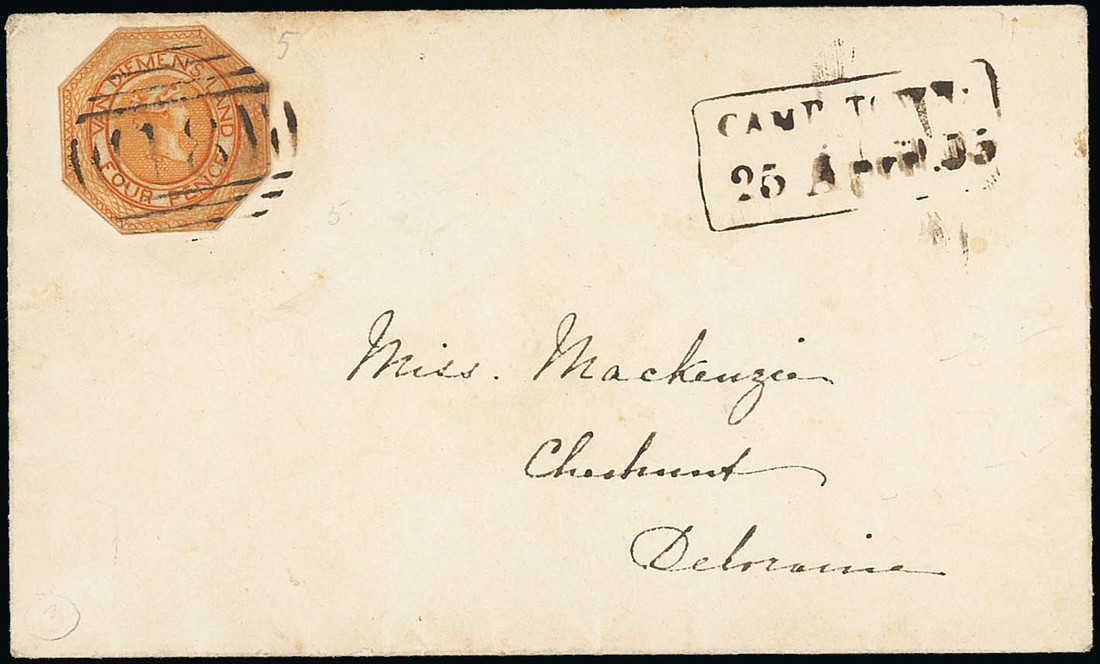 VAN DIEMEN'S LAND
FOUR PENCE
5
CAMP. TOWN.
25 April.55
5
Miss. Mackenzie
Cheshunt
Deloraine
3